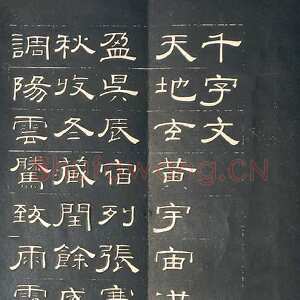 千字文
天地玄黃宇宙洪
盈昃辰宿列張寒
秋收冬藏閏餘成
調陽雲騰致雨露